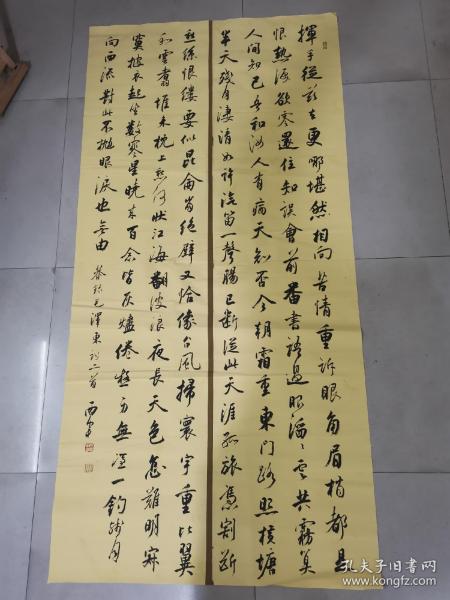 揮手從茲去更哪堪然相向苦情重訴眼角眉梢都是
恨熱淚欲零還住知誤會前番書語過眼滔〻雲共霧算
人間知己吾和汝人有病天知否今朝霜重東門路照橫塘
半天殘月淒清如許汽笛一聲腸已斷從此天涯孤旅憑割斷
愁絲恨縷要似昆侖崩絕壁又恰像台風掃寰宇重比翼
和雲翥堆來枕上愁何狀江海翻波浪夜長天色怎難明寂
寞披衣起坐數寒星曉來百念皆灰燼倦極身無憑一鈎殘月
向西流對此不拋眼淚也無由 恭録毛澤東詞二首
孔夫子旧书网
book.kongfz.com